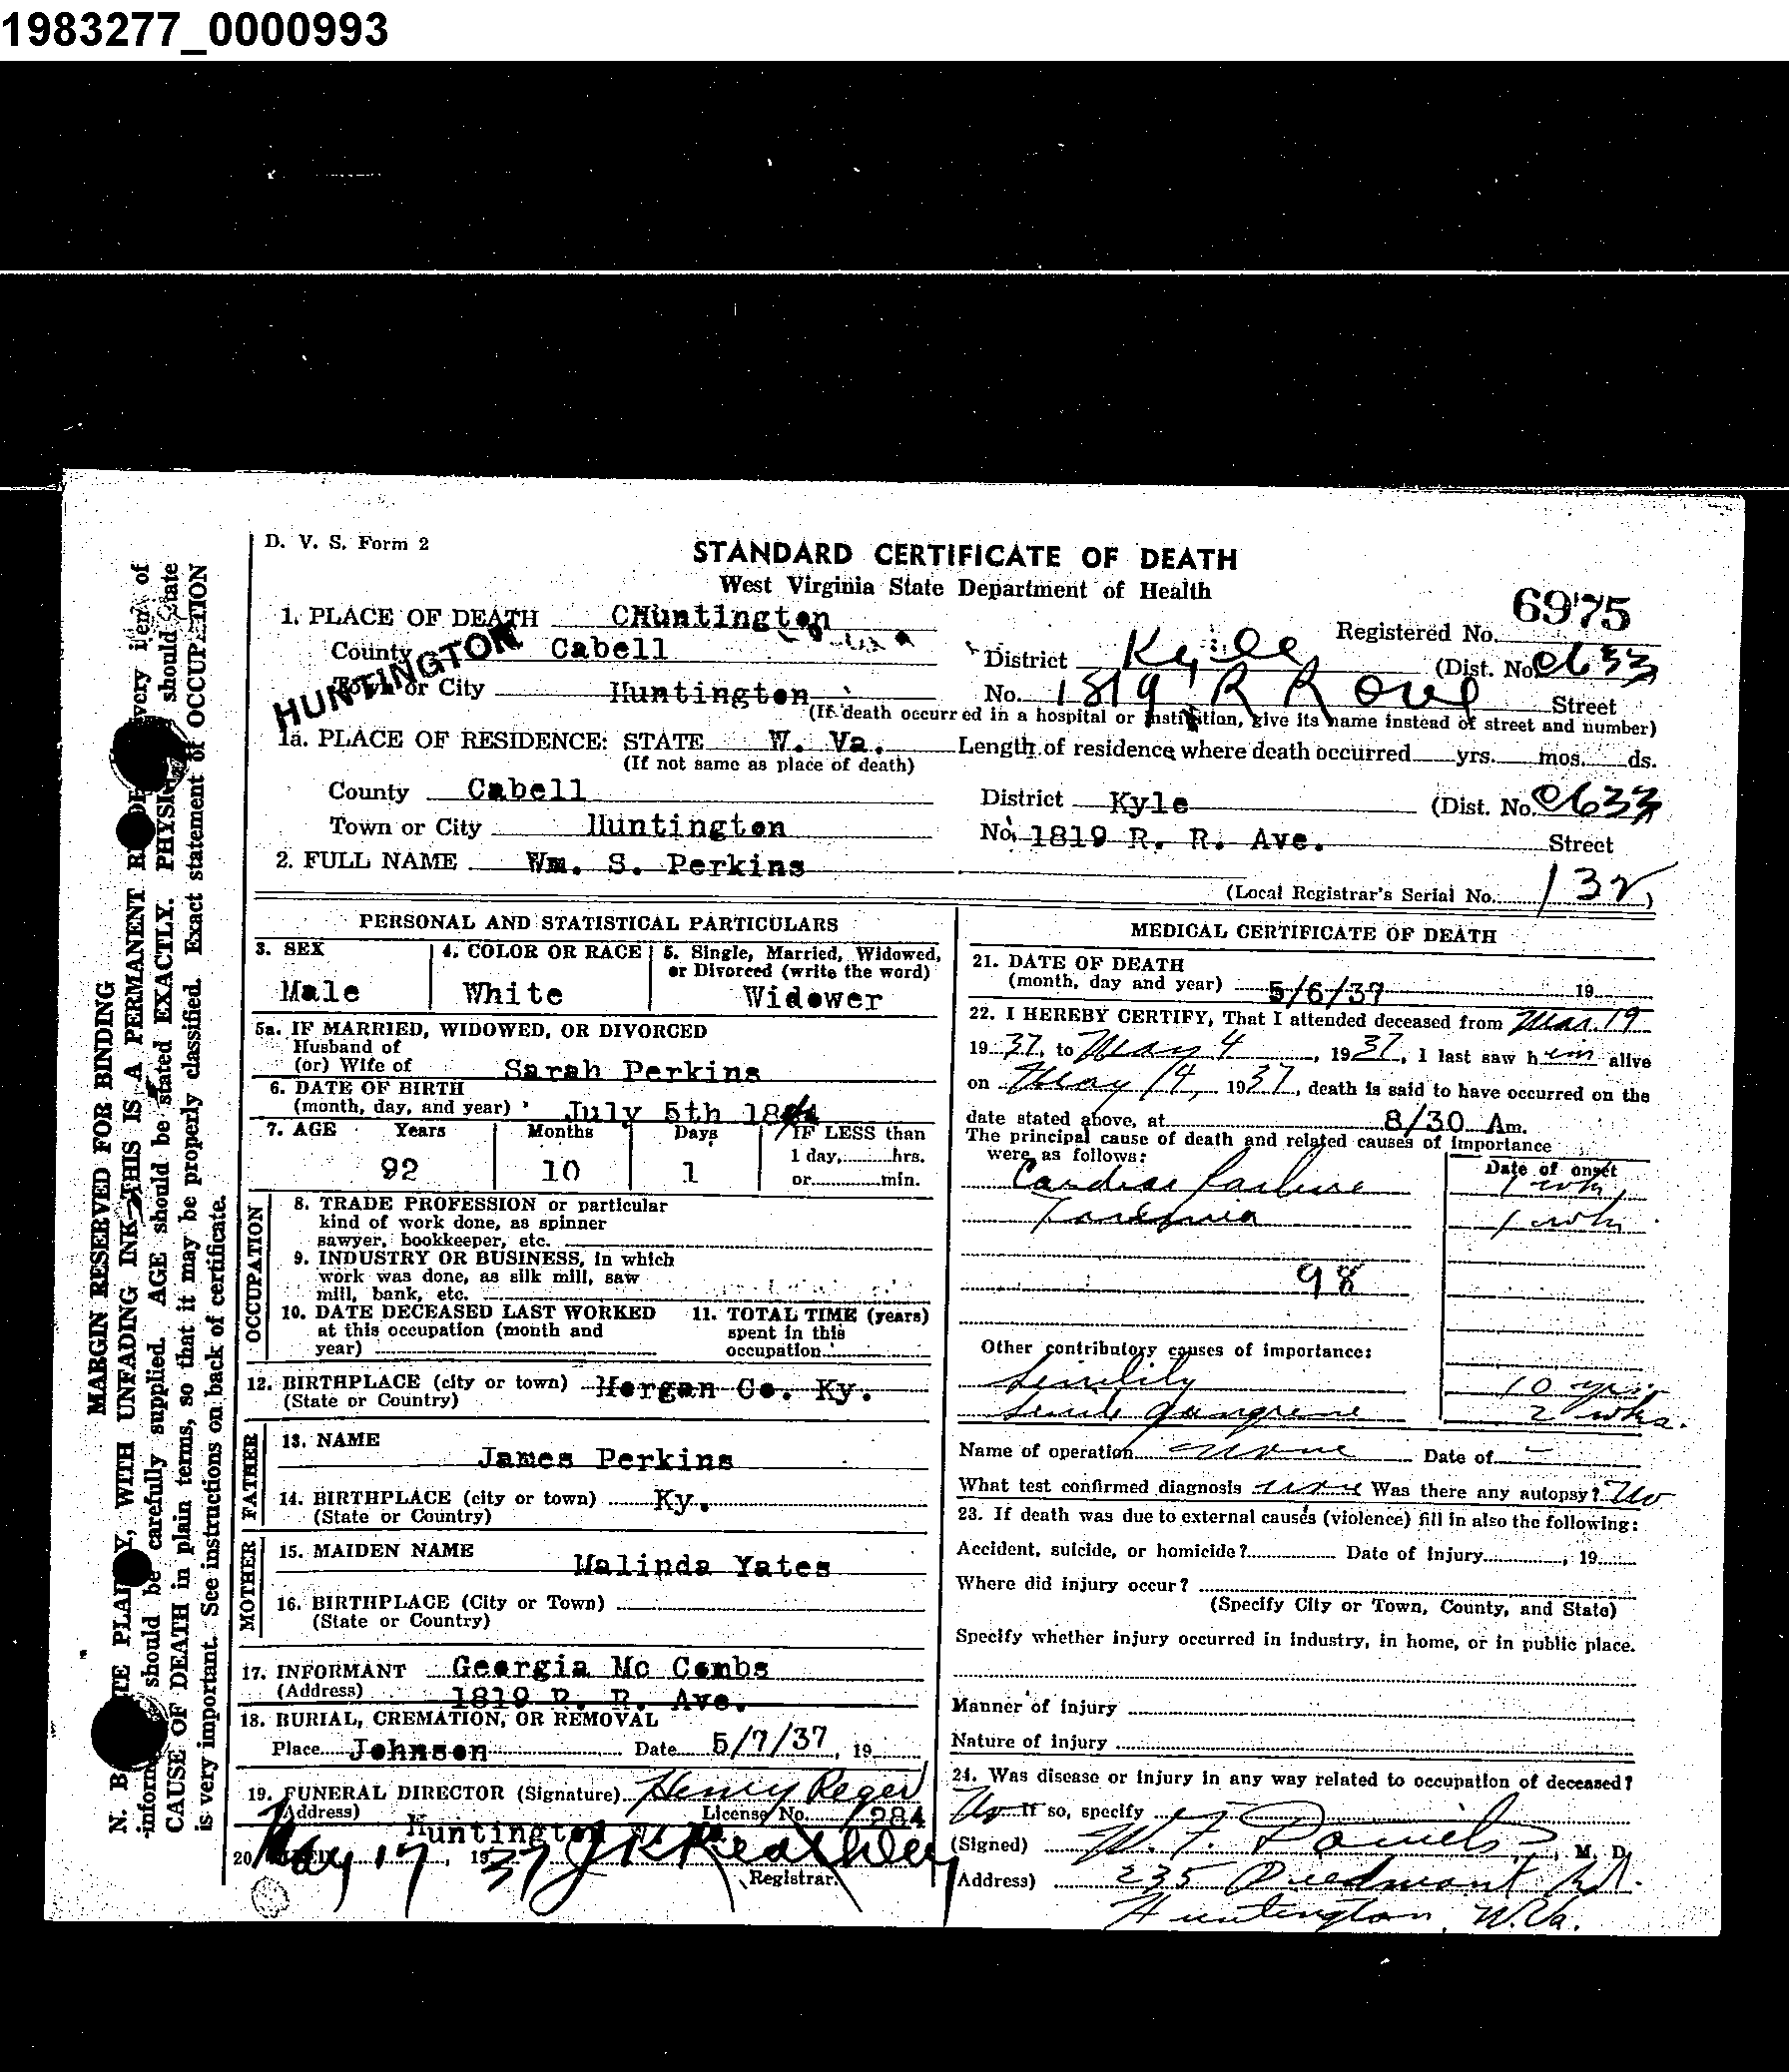 1983277_0000993
D. V. S. Form 2
STANDARD CERTIFICATE OF DEATH
West Virginia State Department of Health
6975
1. PLACE OF DEATH CHuntington
Registered No.
County Cabell
District Kyle (Dist. No. 0633
HUNTINGTON
Town or City Huntington
No. 1819 R R Street
(If death occurred in a hospital or institution, give its name instead of street and number)
1a. PLACE OF RESIDENCE: STATE W. Va. Length of residence where death occurred yrs. mos. ds.
(If not same as place of death)
County Cabell District Kyle (Dist. No. 0633
Town or City Huntington No. 1819 R. R. Ave. Street
2. FULL NAME Wm. S. Perkins
(Local Registrar's Serial No. 132)
PERSONAL AND STATISTICAL PARTICULARS
3. SEX 4. COLOR OR RACE 5. Single, Married, Widowed,
or Divorced (write the word)
Male White Widower
5a. IF MARRIED, WIDOWED, OR DIVORCED
Husband of
(or) Wife of Sarah Perkins
6. DATE OF BIRTH
(month, day, and year) July 5th
7. AGE Years Months Days IF LESS than
1 day, hrs.
92 10 1 or min.
OCCUPATION
8. TRADE PROFESSION or particular
kind of work done, as spinner
sawyer, bookkeeper, etc.
9. INDUSTRY OR BUSINESS, in which
work was done, as silk mill, saw
mill, bank, etc.
10. DATE DECEASED LAST WORKED 11. TOTAL TIME (years)
at this occupation (month and spent in this
year) occupation
12. BIRTHPLACE (city or town) Morgan Co. Ky.
(State or Country)
FATHER
13. NAME
James Perkins
14. BIRTHPLACE (city or town) Ky.
(State or Country)
MOTHER
15. MAIDEN NAME
Malinda Yates
16. BIRTHPLACE (City or Town)
(State or Country)
17. INFORMANT Georgia Mc Combs
(Address) 1819 R. R. Ave.
18. BURIAL, CREMATION, OR REMOVAL
Place Johnson Date 5/7/37, 19
19. FUNERAL DIRECTOR (Signature) Henry Reger
(Address) License No. 284
Huntington
20. May 17, 1937 J K Keathley
Registrar.
MEDICAL CERTIFICATE OF DEATH
21. DATE OF DEATH
(month, day and year) 5/6/37 19
22. I HEREBY CERTIFY, That I attended deceased from Mar. 19
1937, to May 4, 1937, I last saw him alive
on May 14, 1937, death is said to have occurred on the
date stated above, at 8/30 Am.
The principal cause of death and related causes of importance
were as follows: Date of onset
Cardiac failure 1 wk,
Toxemia 1 wk
98
Other contributory causes of importance:
Senility 10 yrs.
Senile gangrene 2 wks.
Name of operation none Date of -
What test confirmed diagnosis none Was there any autopsy? No
23. If death was due to external causes (violence) fill in also the following:
Accident, suicide, or homicide? Date of injury, 19
Where did injury occur?
(Specify City or Town, County, and State)
Specify whether injury occurred in industry, in home, or in public place.
Manner of injury
Nature of injury
24. Was disease or injury in any way related to occupation of deceased?
No If so, specify
(Signed) W. F. Daniels, M. D.
(Address) 235 Piedmont Rd.
Huntington, W. Va.
MARGIN RESERVED FOR BINDING
N. B. PLAINLY, WITH UNFADING INK—THIS IS A PERMANENT RECORD. Every item of
information should be carefully supplied. AGE should be stated EXACTLY. PHYSICIANS should state
CAUSE OF DEATH in plain terms, so that it may be properly classified. Exact statement of OCCUPATION
is very important. See instructions on back of certificate.